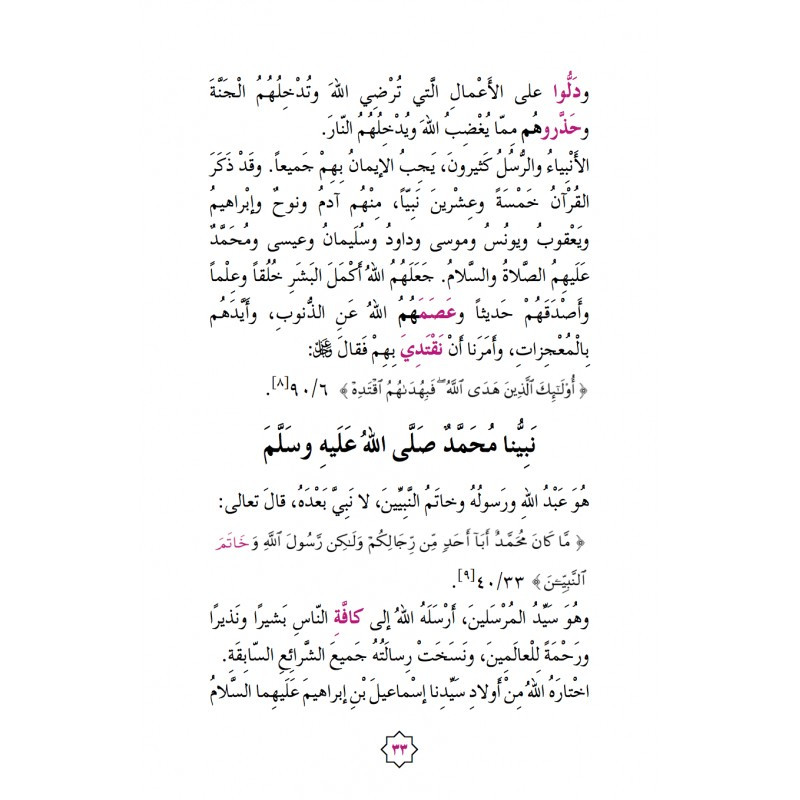 ودَلُّوا على الأَعْمالِ الَّتي تُرْضِي اللهَ وتُدْخِلُهُمُ الْجَنَّةَ
وحَذَّروهُم مِمّا يُغْضِبُ اللهَ ويُدْخِلُهُمُ النّارَ.
الأَنْبِياءُ والرُّسُلُ كَثيرونَ، يَجِبُ الإيمانُ بِهِمْ جَميعاً. وقَدْ ذَكَرَ
القُرْآنُ خَمْسَةً وعِشْرينَ نَبِيّاً، مِنْهُم آدمُ ونوحٌ وإبْراهيمُ
ويَعْقوبُ ويونُسُ وموسى وداودُ وسُلَيمانُ وعيسى ومُحَمَّدٌ
عَلَيهِمُ الصَّلاةُ والسَّلامُ. جَعَلَهُمُ اللهُ أَكْمَلَ البَشَرِ خُلُقاً وعِلْماً
وأَصْدَقَهُمْ حَديثاً وعَصَمَهُمُ اللهُ عَنِ الذُّنوبِ، وأَيَّدَهُم
بِالْمُعْجِزاتِ، وأَمَرَنا أَنْ نَقْتَدِيَ بِهِمْ فَقالَ ﷻ:
﴿ أُوْلَٰٓئِكَ ٱلَّذِينَ هَدَى ٱللَّهُ ۖ فَبِهُدَىٰهُمُ ٱقْتَدِهْ ﴾ ٩٠/٦[٨].
نَبِيُّنا مُحَمَّدٌ صَلَّى اللهُ عَلَيهِ وسَلَّمَ
هُوَ عَبْدُ اللهِ ورَسولُهُ وخاتَمُ النَّبِيِّينَ، لا نَبِيَّ بَعْدَهُ، قالَ تعالى:
﴿ مَّا كَانَ مُحَمَّدٌ أَبَآ أَحَدٍ مِّن رِّجَالِكُمْ وَلَٰكِن رَّسُولَ ٱللَّهِ وَخَاتَمَ
ٱلنَّبِيِّـۧنَ ﴾ ٤٠/٣٣[٩].
وهُوَ سَيِّدُ المُرْسَلينَ، أَرْسَلَهُ اللهُ إلى كافَّةِ النّاسِ بَشيرًا ونَذيرًا
ورَحْمَةً لِلْعالَمينَ، ونَسَخَتْ رِسالَتُهُ جَميعَ الشَّرائِعِ السّابِقَةِ.
اخْتارَهُ اللهُ مِنْ أَولادِ سَيِّدِنا إسْماعيلَ بْنِ إبراهيمَ عَلَيهِما السَّلامُ
٣٣